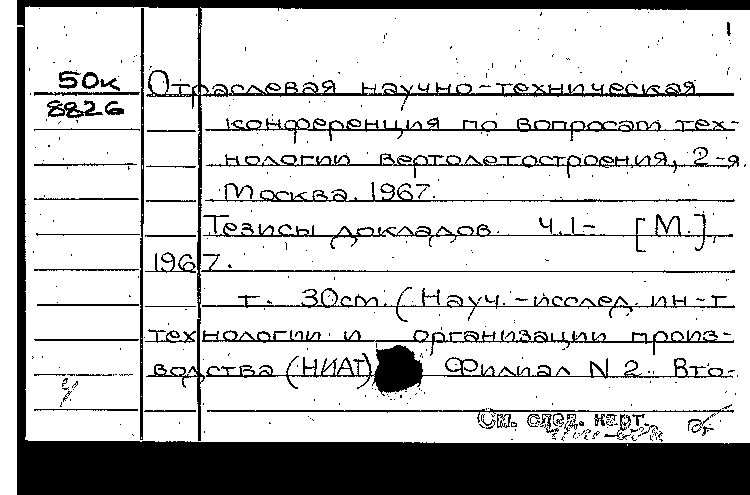 1
50к
8826
Отраслевая научно-техническая
конференция по вопросам тех-
нологии вертолетостроения, 2-я.
Москва. 1967.
Тезисы докладов. Ч.1- [М.],
1967.
т. 30см. (Науч.-исслед. ин-т
технологии и организации произ-
водства (НИАТ) Филиал N 2. Вто-
См. след. карт.